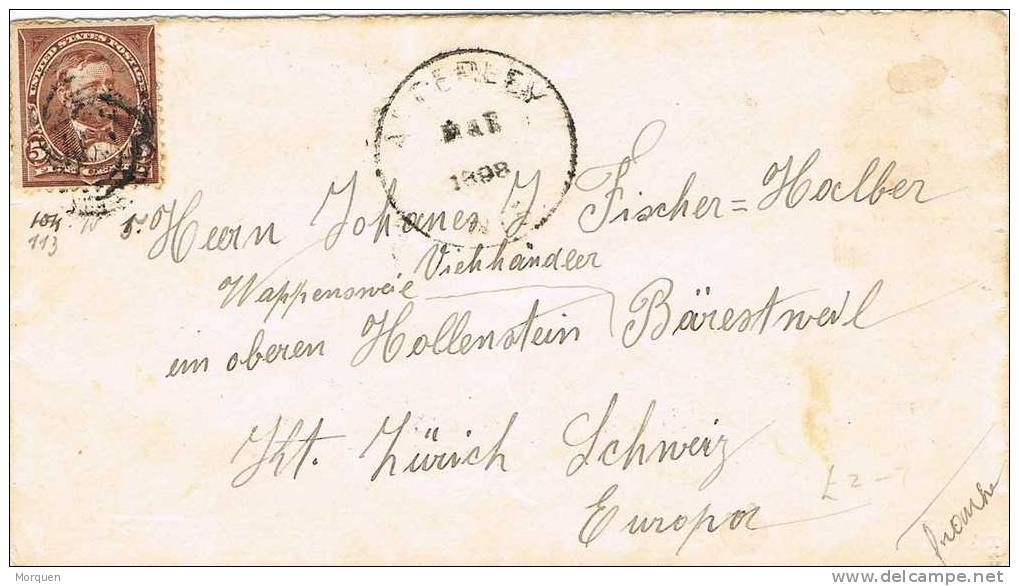 UNITED STATES POSTAGE
5
MAR
1898
Herrn Johanes J. Fischer=Halber
Viehhändler
Wappensweie
im oberen Hollenstein Bärestweil
Kt. Zürich Schweiz
Europa
113
£2-
Morquen
delcampe.net